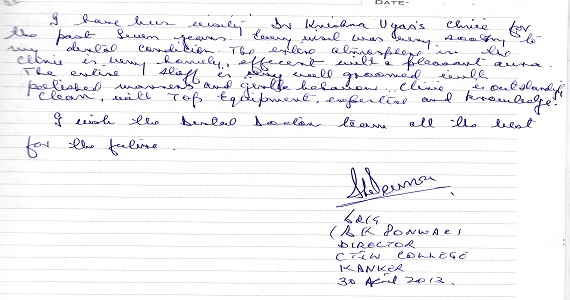 DATE-
I have been visiting Dr Krishna Ugas's clinic for
the past seven years. Every visit was very soothing to
my dental condition. The entire atmosphere in the
clinic is very homely, efficient with a pleasant aura.
The entire staff is very well groomed with
polished manners and gentle behaviour. Clinic is outstandingly
clean, with top equipment, expertise and knowledge.
I wish the Dental Doctor team all the best
for the future.
BRIG
(BK PONWAR)
DIRECTOR
CTJW COLLEGE
KANKER
30 April 2013.